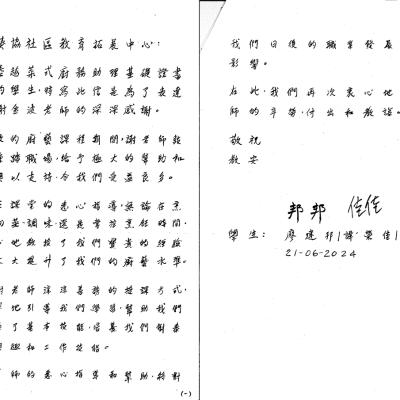 協社區教育拓展中心:
菜式廚務助理基礎證書
學生,特寫此信是為了表達
老師的深深感謝。
的廚藝課程期間,謝老師
職場,給予極大的幫助和
以支持,令我們受益良多。
課堂的悉心指導,無論在烹
調味還是掌控烹飪時間,
心地教授了我們寶貴的經驗
大大提升了我們的廚藝水準。
老師深淺善誘的授課方式,
地引導我們學習,幫助我們
了基本技能,培養我們對
和工作技能。
師的悉心指導和幫助,將對
(一)
我們日後的職業發展
影響。
在此,我們再次衷心地
師的辛勞付出和教誨。
敬祝
教安
邦邦 佳佳
學生: 廖建邦/譚榮佳/
21-06-2024